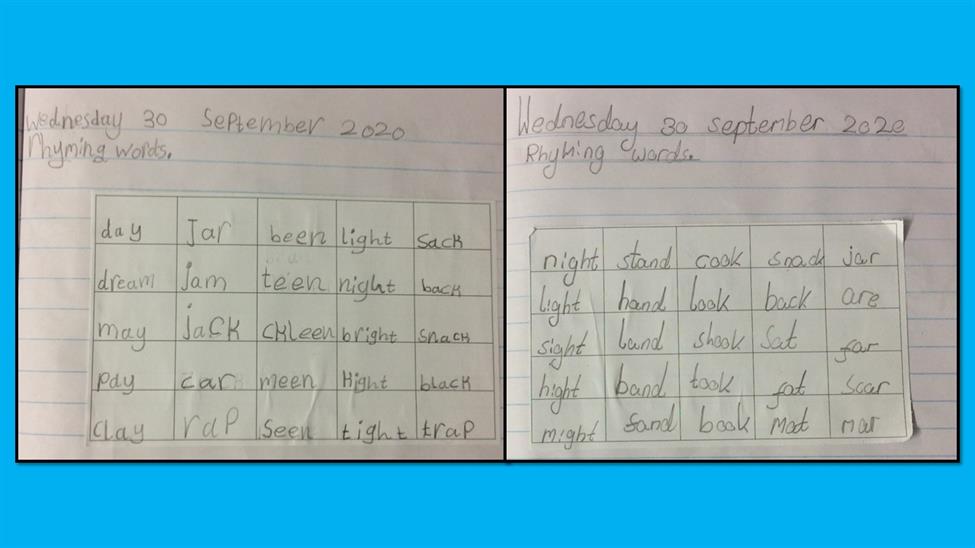 Wednesday 30 September 2020
Rhyming words.
day Jar been light sack
dream jam teen night back
may jack ckleen bright snack
pay car meen Hight black
clay rap seen tight trap
Wednesday 30 september 2020
Rhyming words.
night stand cook snack jar
light hand look back are
sight land shook sat far
hight band took fat scar
might sand book mat mar